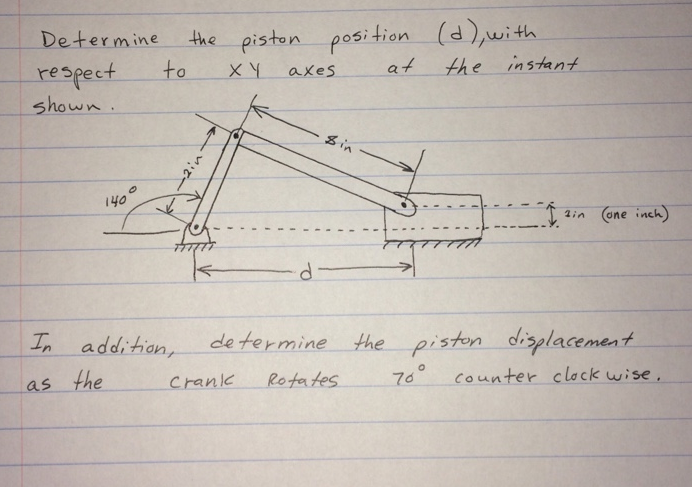 Determine the piston position (d), with
respect to XY axes at the instant
shown.
8 in
2in
140°
1in (one inch)
d
In addition, determine the piston displacement
as the crank Rotates 70° counter clockwise.